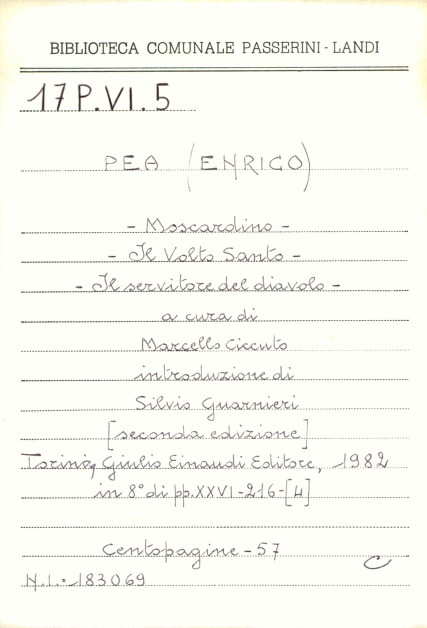 BIBLIOTECA COMUNALE PASSERINI-LANDI
17 P.VI.5
PEA (ENRICO)
- Moscardino -
- Il Volto Santo -
- Il servitore del diavolo -
a cura di
Marcello Ciccuto
introduzione di
Silvio Guarnieri
[seconda edizione]
Torino, Giulio Einaudi Editore, 1982
in 8° di pp. XXVI-216-[4]
Centopagine - 57
C
N.I.: 183069